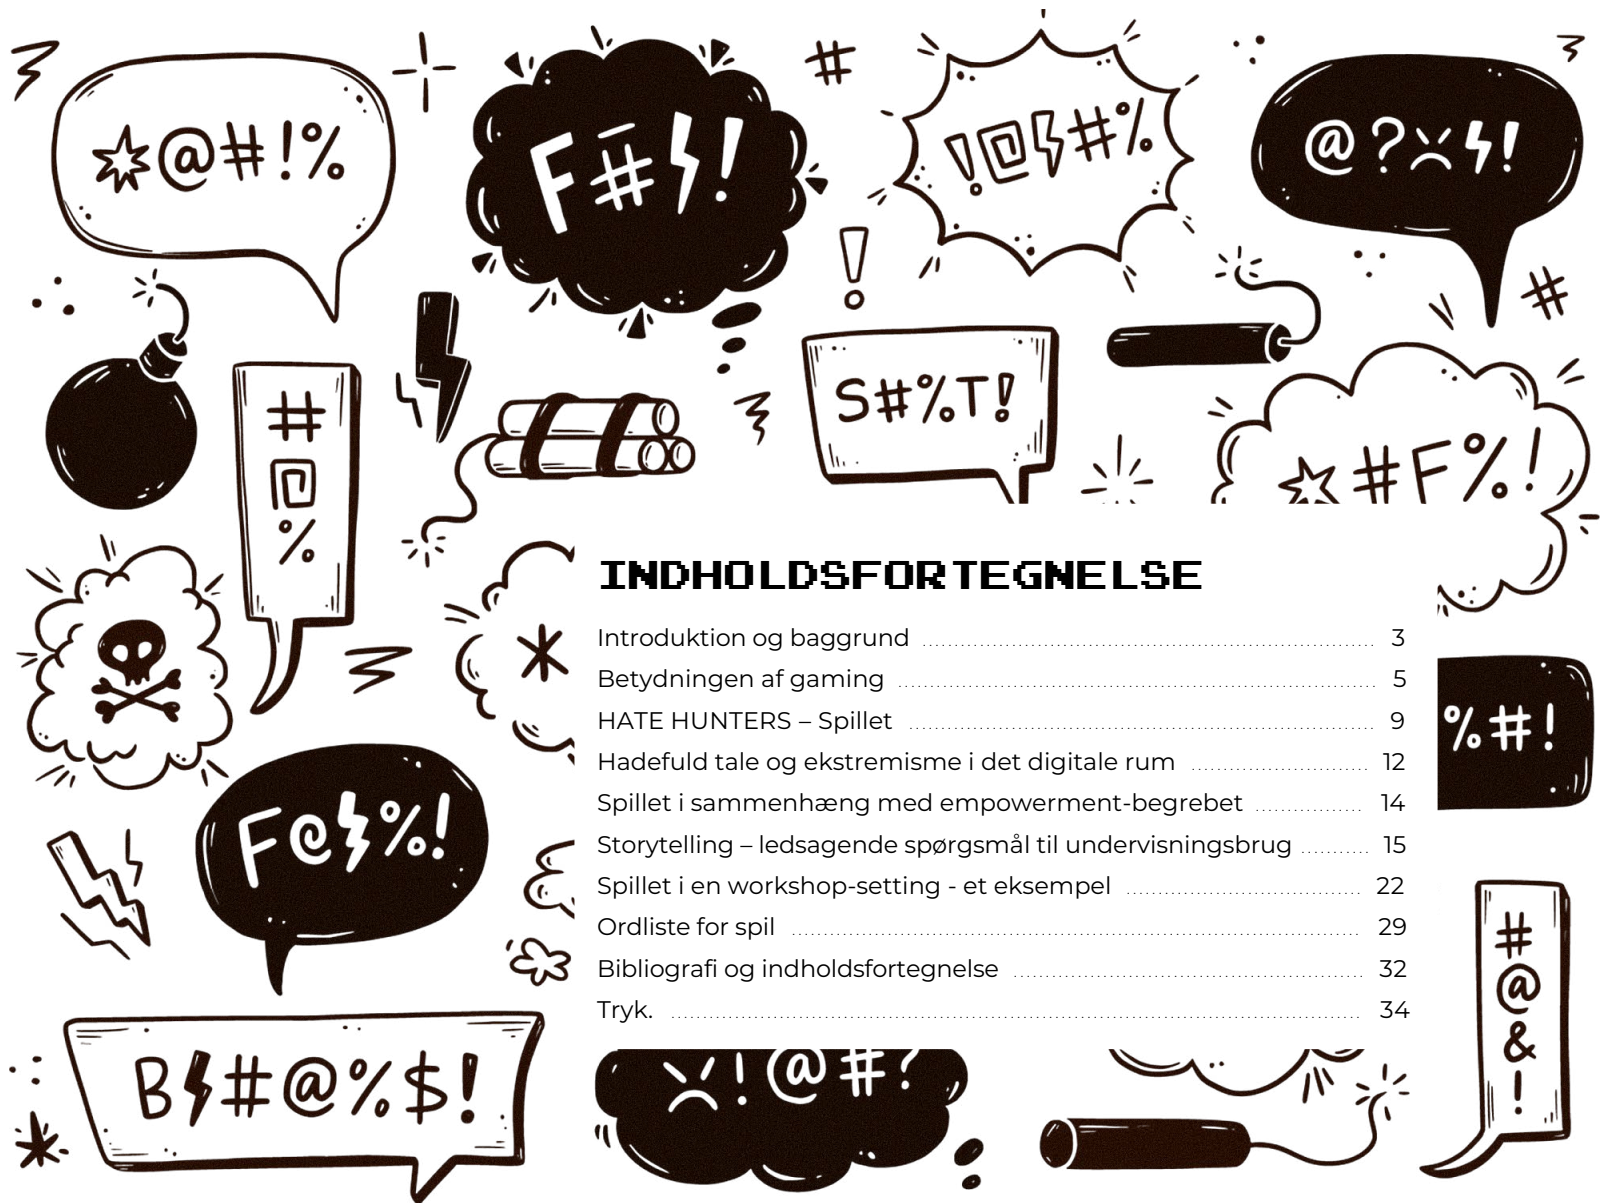 @#!%
F#!
!@#%
@?!
#
#
!
#@%
S#%T!
#F%!
INDHOLDSFORTEGNELSE
Introduktion og baggrund 3
Betydningen af gaming 5
HATE HUNTERS – Spillet 9
Hadefuld tale og ekstremisme i det digitale rum 12
Spillet i sammenhæng med empowerment-begrebet 14
Storytelling – ledsagende spørgsmål til undervisningsbrug 15
Spillet i en workshop-setting - et eksempel 22
Ordliste for spil 29
Bibliografi og indholdsfortegnelse 32
Tryk. 34
*
%#!
F@%!
#@&!
B#@%$!
!@#?